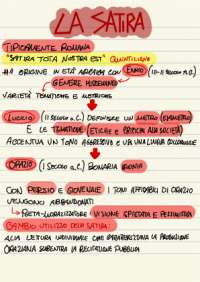 LA SATIRA
TIPICAMENTE ROMANA
"SATURA TOTA NOSTRA EST" QUINTILIANO
HA ORIGINE IN ETÀ ARCAICA CON ENNIO (III-II SECOLO a.C.)
GENERE MISCELLANEO
VARIETÀ TEMATICHE E METRICHE
LUCILIO (II SECOLO a.C.) DEFINISCE UN METRO (ESAMETRO)
E LE TEMATICHE (ETICHE E CRITICHE ALLA SOCIETÀ)
ACCENTUA UN TONO AGGRESSIVO E USA UNA LINGUA COLLOQUIALE
ORAZIO (I SECOLO a.C.) BONARIA IRONIA
CON PERSIO E GIOVENALE I TONI AFFABILI DI ORAZIO
VENGONO ABBANDONATI
POETA-MORALIZZATORE VISIONE SFIDATA E PESSIMISTA
CAMBIO UTILIZZO DELLA SATIRA:
ALLA LETTURA INDIVIDUALE CHE CARATTERIZZAVA LA PRODUZIONE
ORAZIANA SUBENTRA LA RECITAZIONE PUBBLICA